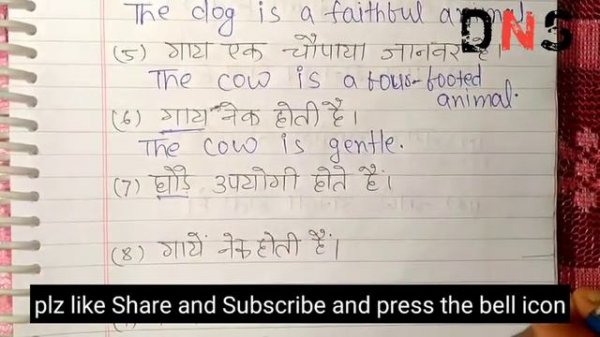 The dog is a faithful animal.
DNS
(5) गाय एक चौपाया जानवर है।
The cow is a four-footed
animal.
(6) गाय नेक होती है।
The cow is gentle.
(7) घोडे उपयोगी होते हैं।
(8) गायें नेक होती हैं।
plz like Share and Subscribe and press the bell icon